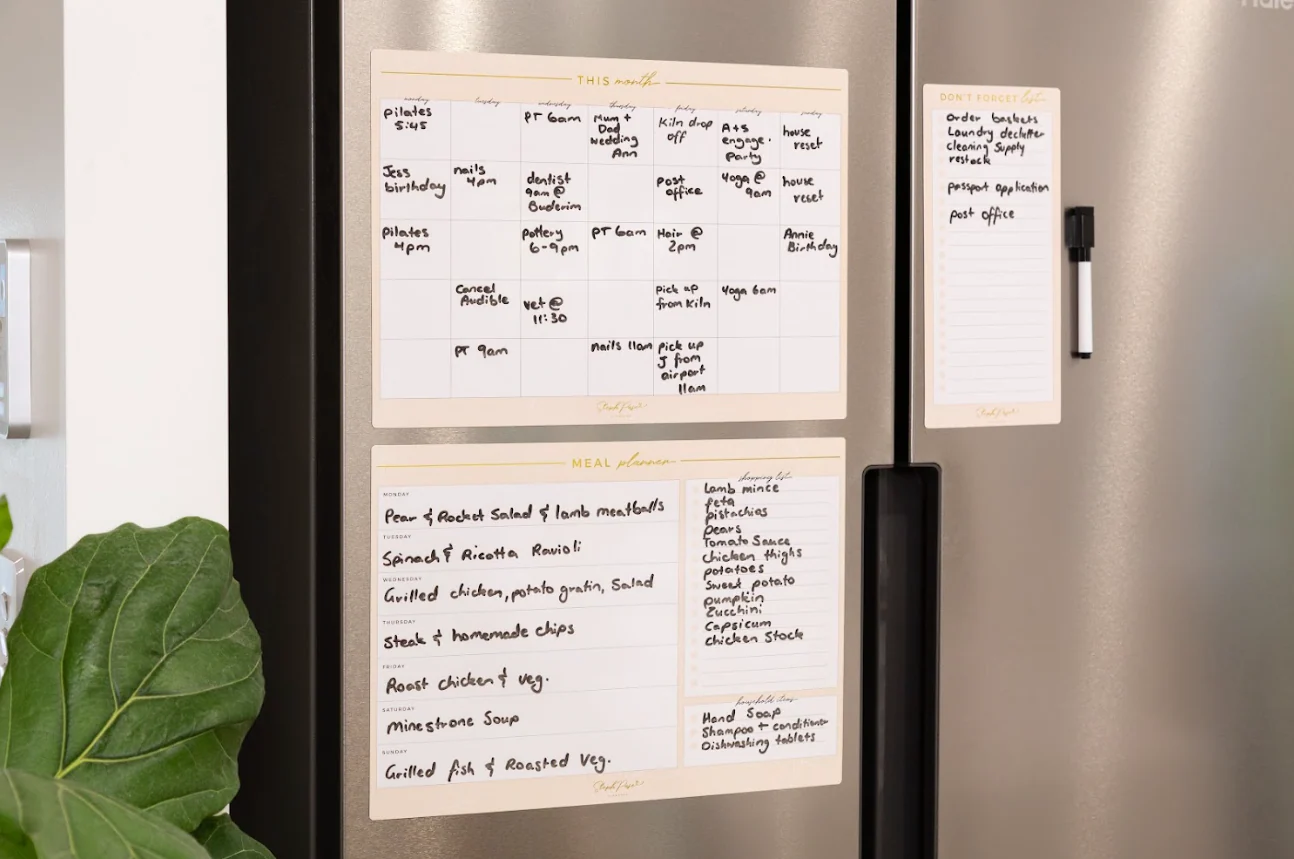 THIS month
monday tuesday wednesday thursday friday saturday sunday
Pilates
5:45
PT 6am
Mum +
Dad
Wedding
Ann
Kiln drop
off
A+S
engage.
Party
house
reset
Jess
birthday
nails
4pm
dentist
9am @
Buderim
Post
office
Yoga @
9am
house
reset
Pilates
4pm
Pottery
6-9pm
PT 6am
Hair @
2pm
Annie
Birthday
Cancel
Audible
Vet @
11:30
Pick up
from Kiln
Yoga 6am
PT 9am
nails 11am
Pick up
J from
airport
11am
MEAL planner
MONDAY
Pear & Rocket Salad & lamb meatballs
TUESDAY
Spinach & Ricotta Ravioli
WEDNESDAY
Grilled chicken, potato gratin, Salad
THURSDAY
Steak & homemade chips
FRIDAY
Roast chicken & veg.
SATURDAY
Minestrone Soup
SUNDAY
Grilled fish & Roasted Veg.
shopping list
Lamb mince
feta
pistachios
pears
Tomato Sauce
chicken thighs
potatoes
Sweet potato
pumpkin
Zucchini
Capsicum
Chicken Stock
household items
Hand Soap
Shampoo + conditioner
Dishwashing tablets
DON'T FORGET list
Order baskets
Laundry declutter
cleaning Supply
restock
passport application
post office